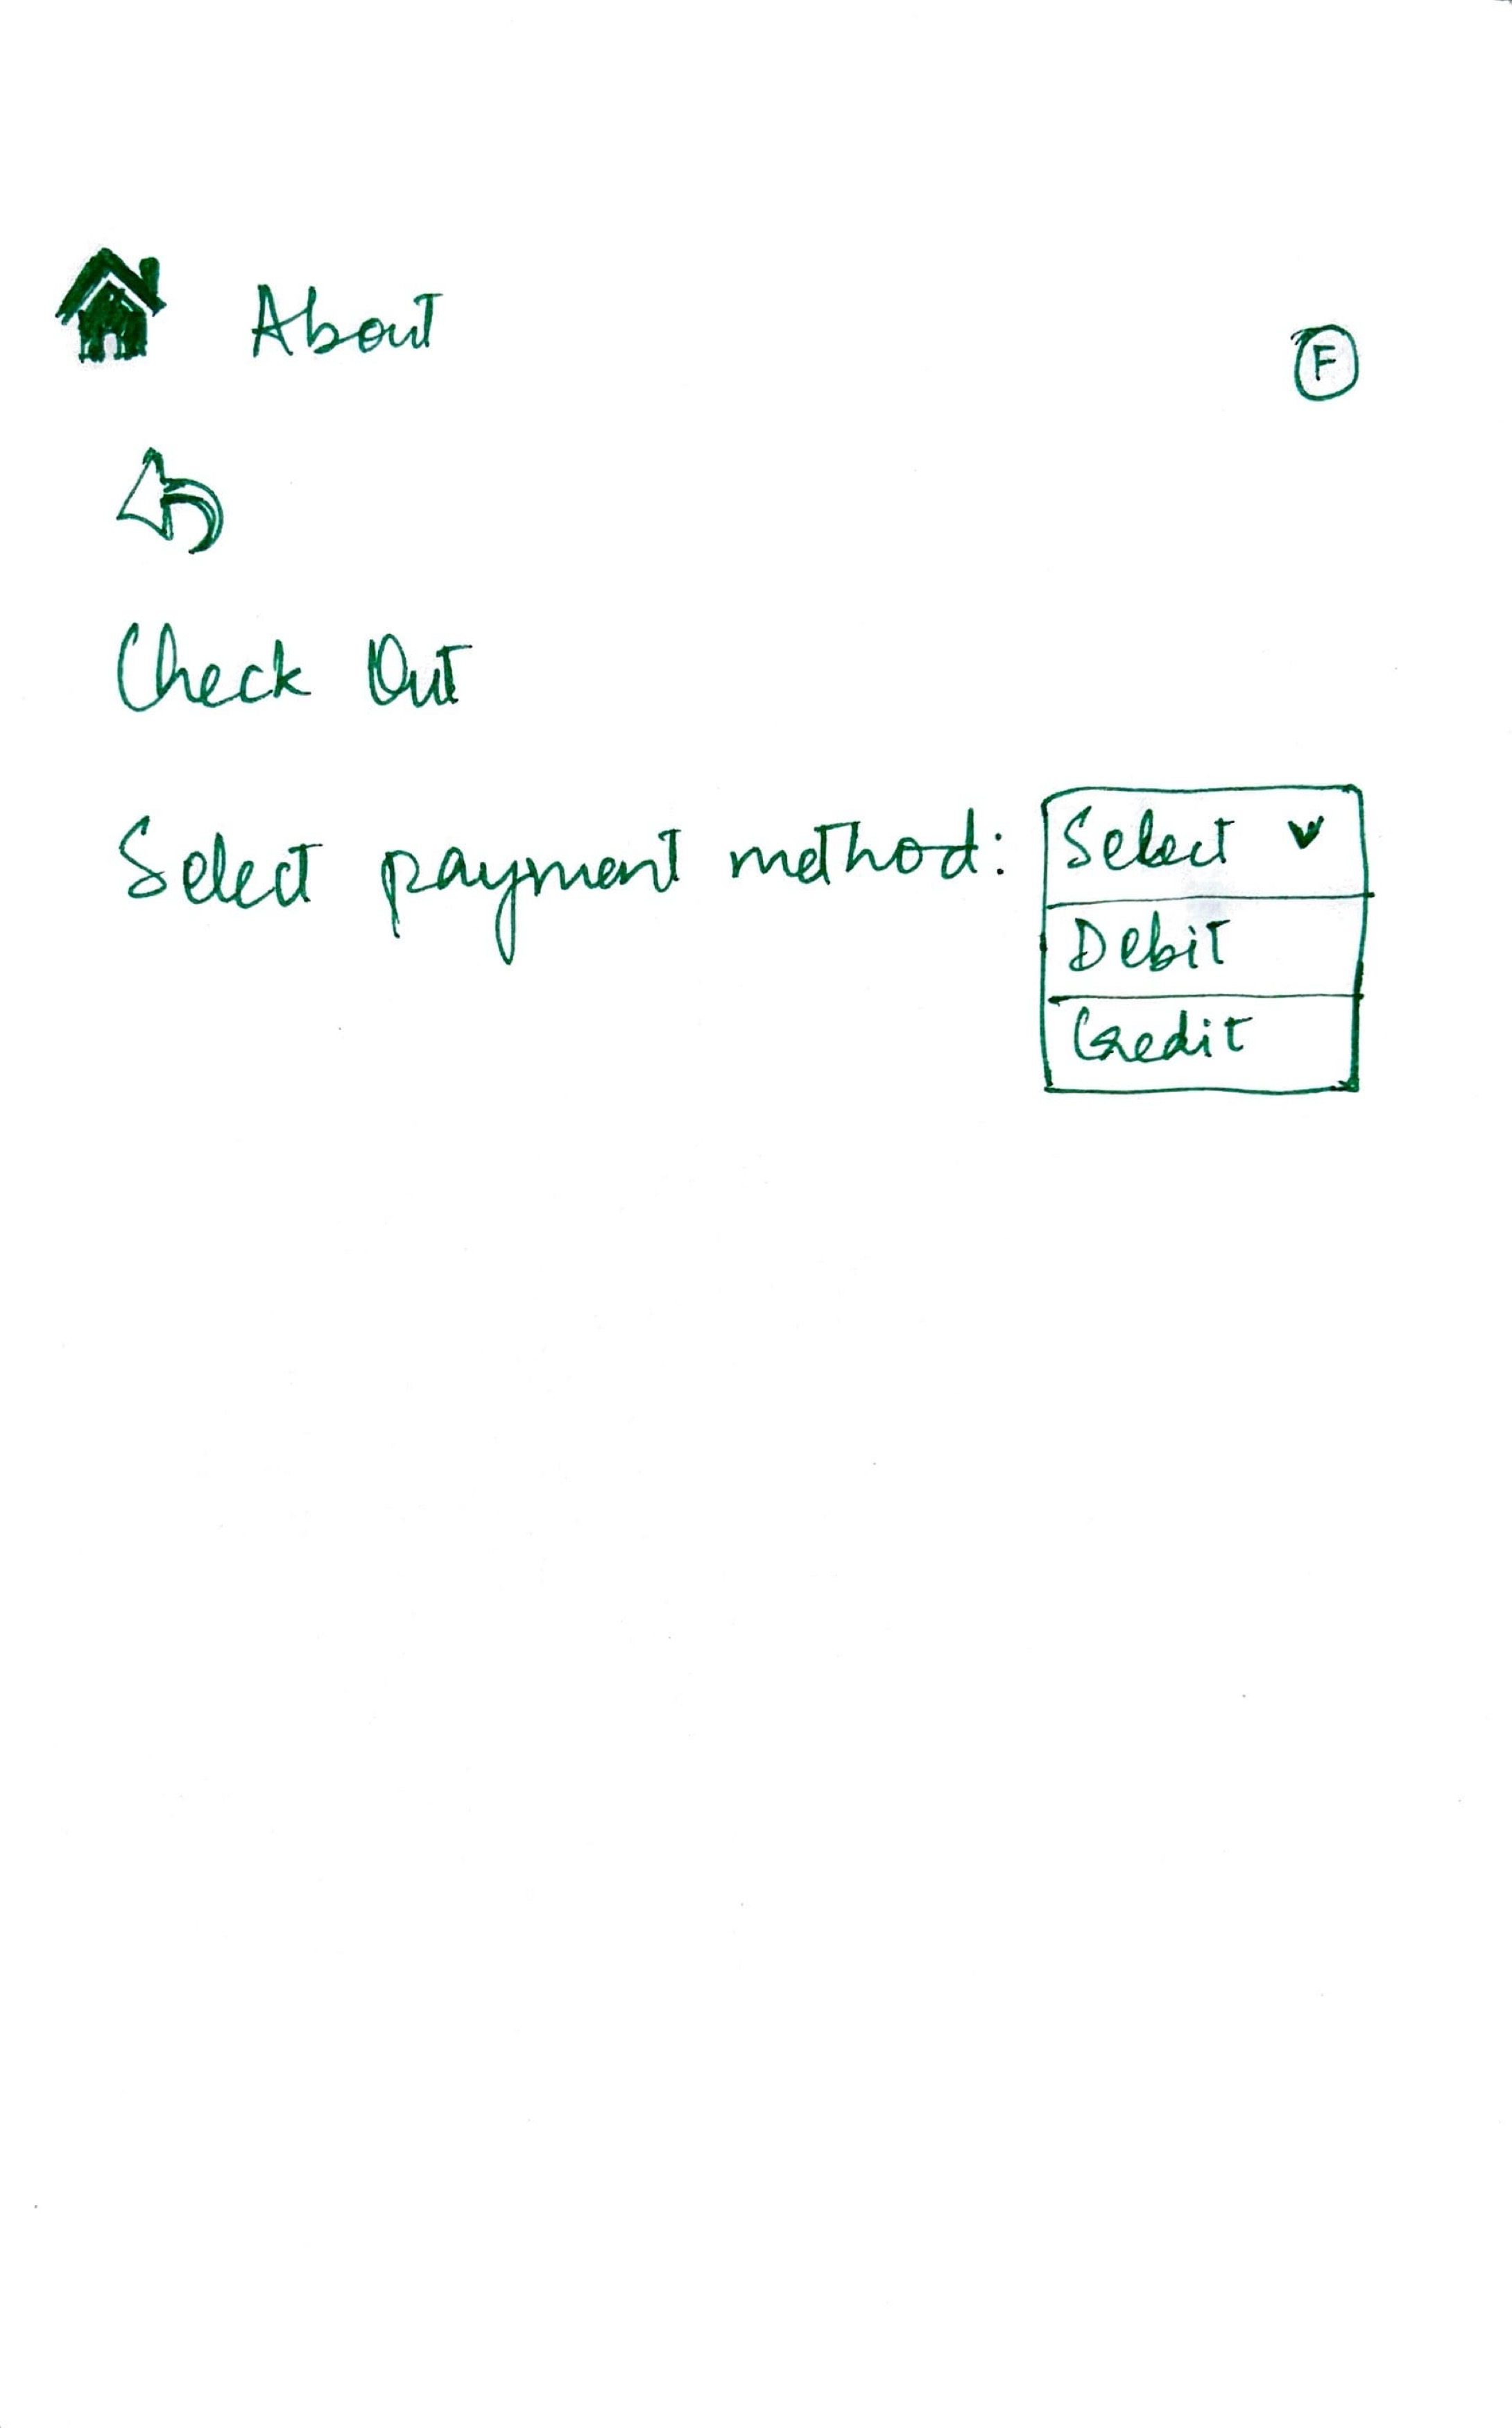 About
F
Check Out
Select payment method: Select
Debit
Credit